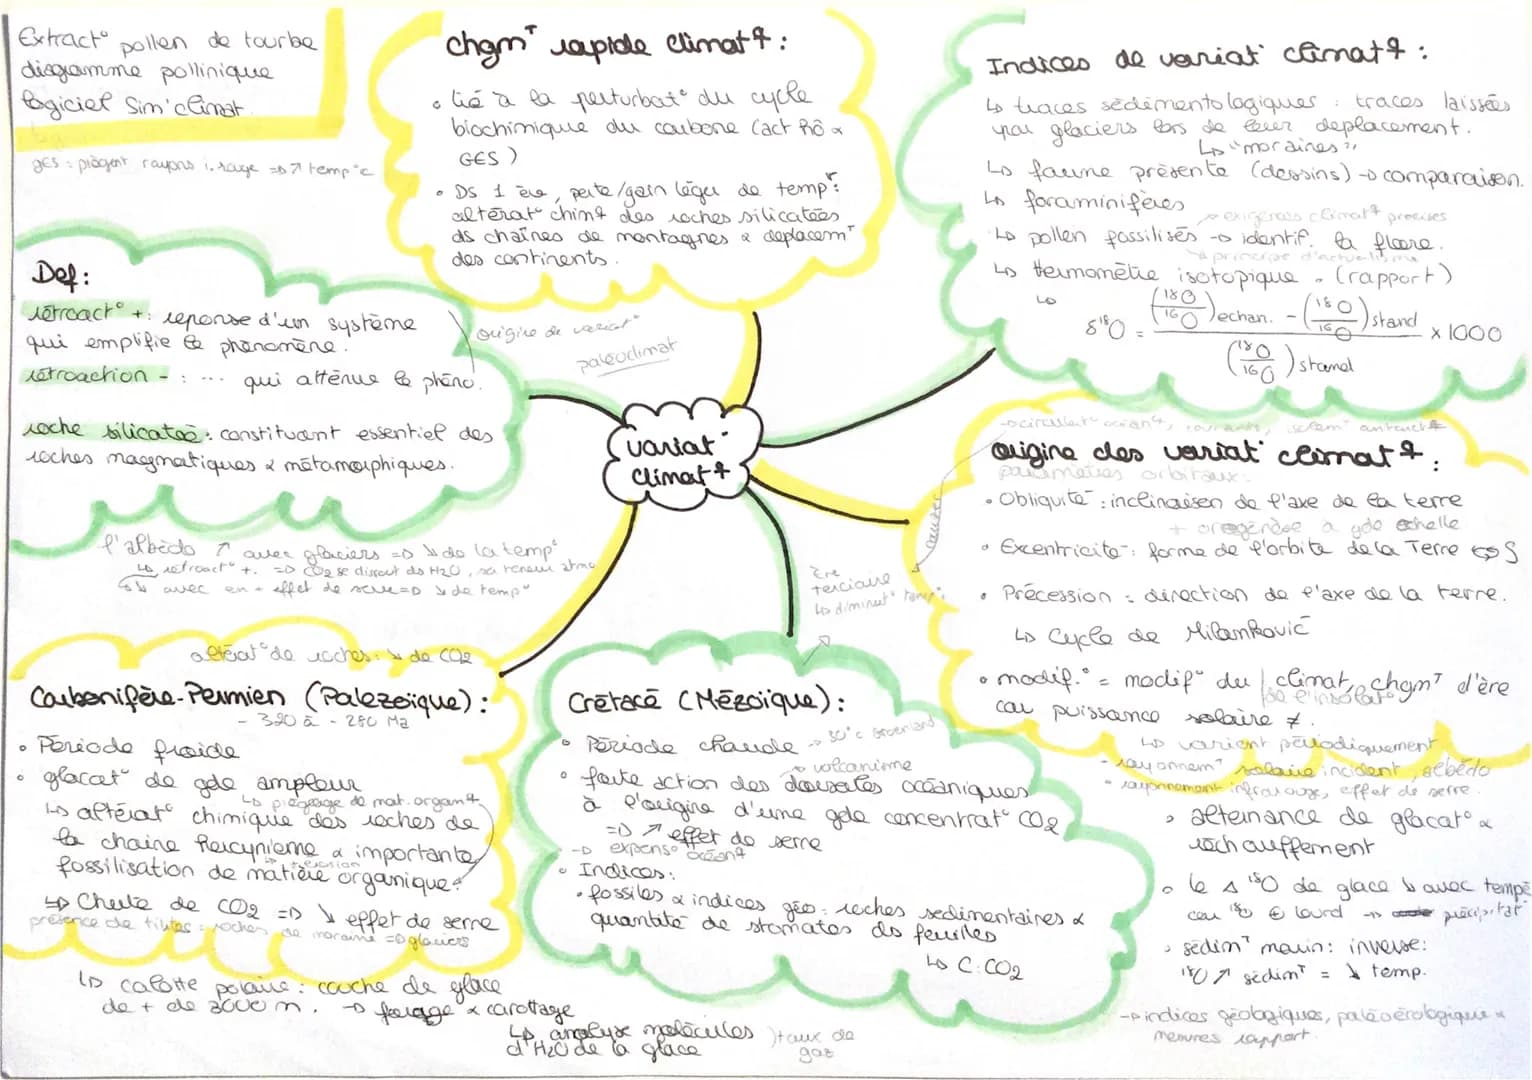 Extract° pollen de tourbe
diagramme pollinique
logiciel Sim'climat
GES : piègent rayons i.rouge => ↗ temp °c
Chgmt rapide climatq :
• lié à la perturbat° du cycle
biochimique du carbone (act hô &
GES)
• Ds 1 ère, perte/gain léger de tempr :
altérat° chimq des roches silicatées
ds chaînes de montagnes & deplacemt
des continents.
Indices de variat° climatq :
↳ traces sédimentologiques : traces laissées
par glaciers lors de leur deplacement.
↳ "moraines"
↳ faune présente (dessins) → comparaison.
↳ foraminifères
→ exigences climatq précises
↳ pollen fossilisés → identif. la flore.
↳ principe d'actualisme
↳ thermomètie isotopique . (rapport)
↳ δ18O = (18O/16O) echan. - (18O/16O) stand / (18O/16O) stand x 1000
Def :
rétroact° + : reponse d'un système
qui emplifie le phénomène.
rétroaction - : ... qui atténue le phéno.
roche silicatée : constituant essentiel des
roches magmatiques & métamorphiques.
origine de variat°
paléoclimat
variat°
climatq
l'albédo ↗ avec glaciers => ↘ de la temp°
↳ rétroact° +. => CO2 se dissout ds H2O, sa teneur atmo
↳ avec en - effet de serre => ↘ de temp°
→ circulat° océanq, courants, isolemt antarctq
origine des variat° climatq :
paramètres orbitaux :
• Obliquité : inclinaison de l'axe de la terre
+ orogénèse à gde echelle
• Excentricité : forme de l'orbite de la Terre
• Précession : direction de l'axe de la terre.
↳ Cycle de Milanković
• modif.° = modif° du climat, chgmt d'ère
de l'insolat°
car puissance solaire ≠.
↳ varient périodiquement
- rayonnemt solaire incident, albédo
- rayonnement infrarouge, effet de serre.
• alternance de glacat° &
réchauffement
• le Δ 18O de glace ↘ avec tempé
car 18O lourd → précipitat°
• sédimt marin : inverse :
18O ↗ sédimt = ↘ temp.
→ indices géologiques, paléoécologique &
mesures rapport
Ère
terciaire
↳ diminut° temp°
altérat° de roches : ↘ de CO2
Carbonifère-Permien (Palezoïque) :
- 320 à - 280 Ma
• Période froide
• glacat° de gde ampleur
↳ piégeage de mat. organq
↳ altérat° chimique des roches de
la chaine hercynienne & importante
fossilisation de matière organique.
↳ Chute de CO2 => ↘ effet de serre
présence de tillites : roches de moraine => glaciers
↳ calotte polaire : couche de glace
de + de 3000 m. → forage & carottage
↳ analyse molécules
d'H2O de la glace
taux de
gaz
Crétacé (Mézoïque) :
• Période chaude → 30°c Groenland
→ volcanisme
• forte action des dorsales océaniques
à l'origine d'une gde concentrat° CO2
=> ↗ effet de serre
→ expens° océanq
• Indices :
• fossiles & indices géo : roches sedimentaires &
quantité de stomates ds feuilles
↳ C : CO2